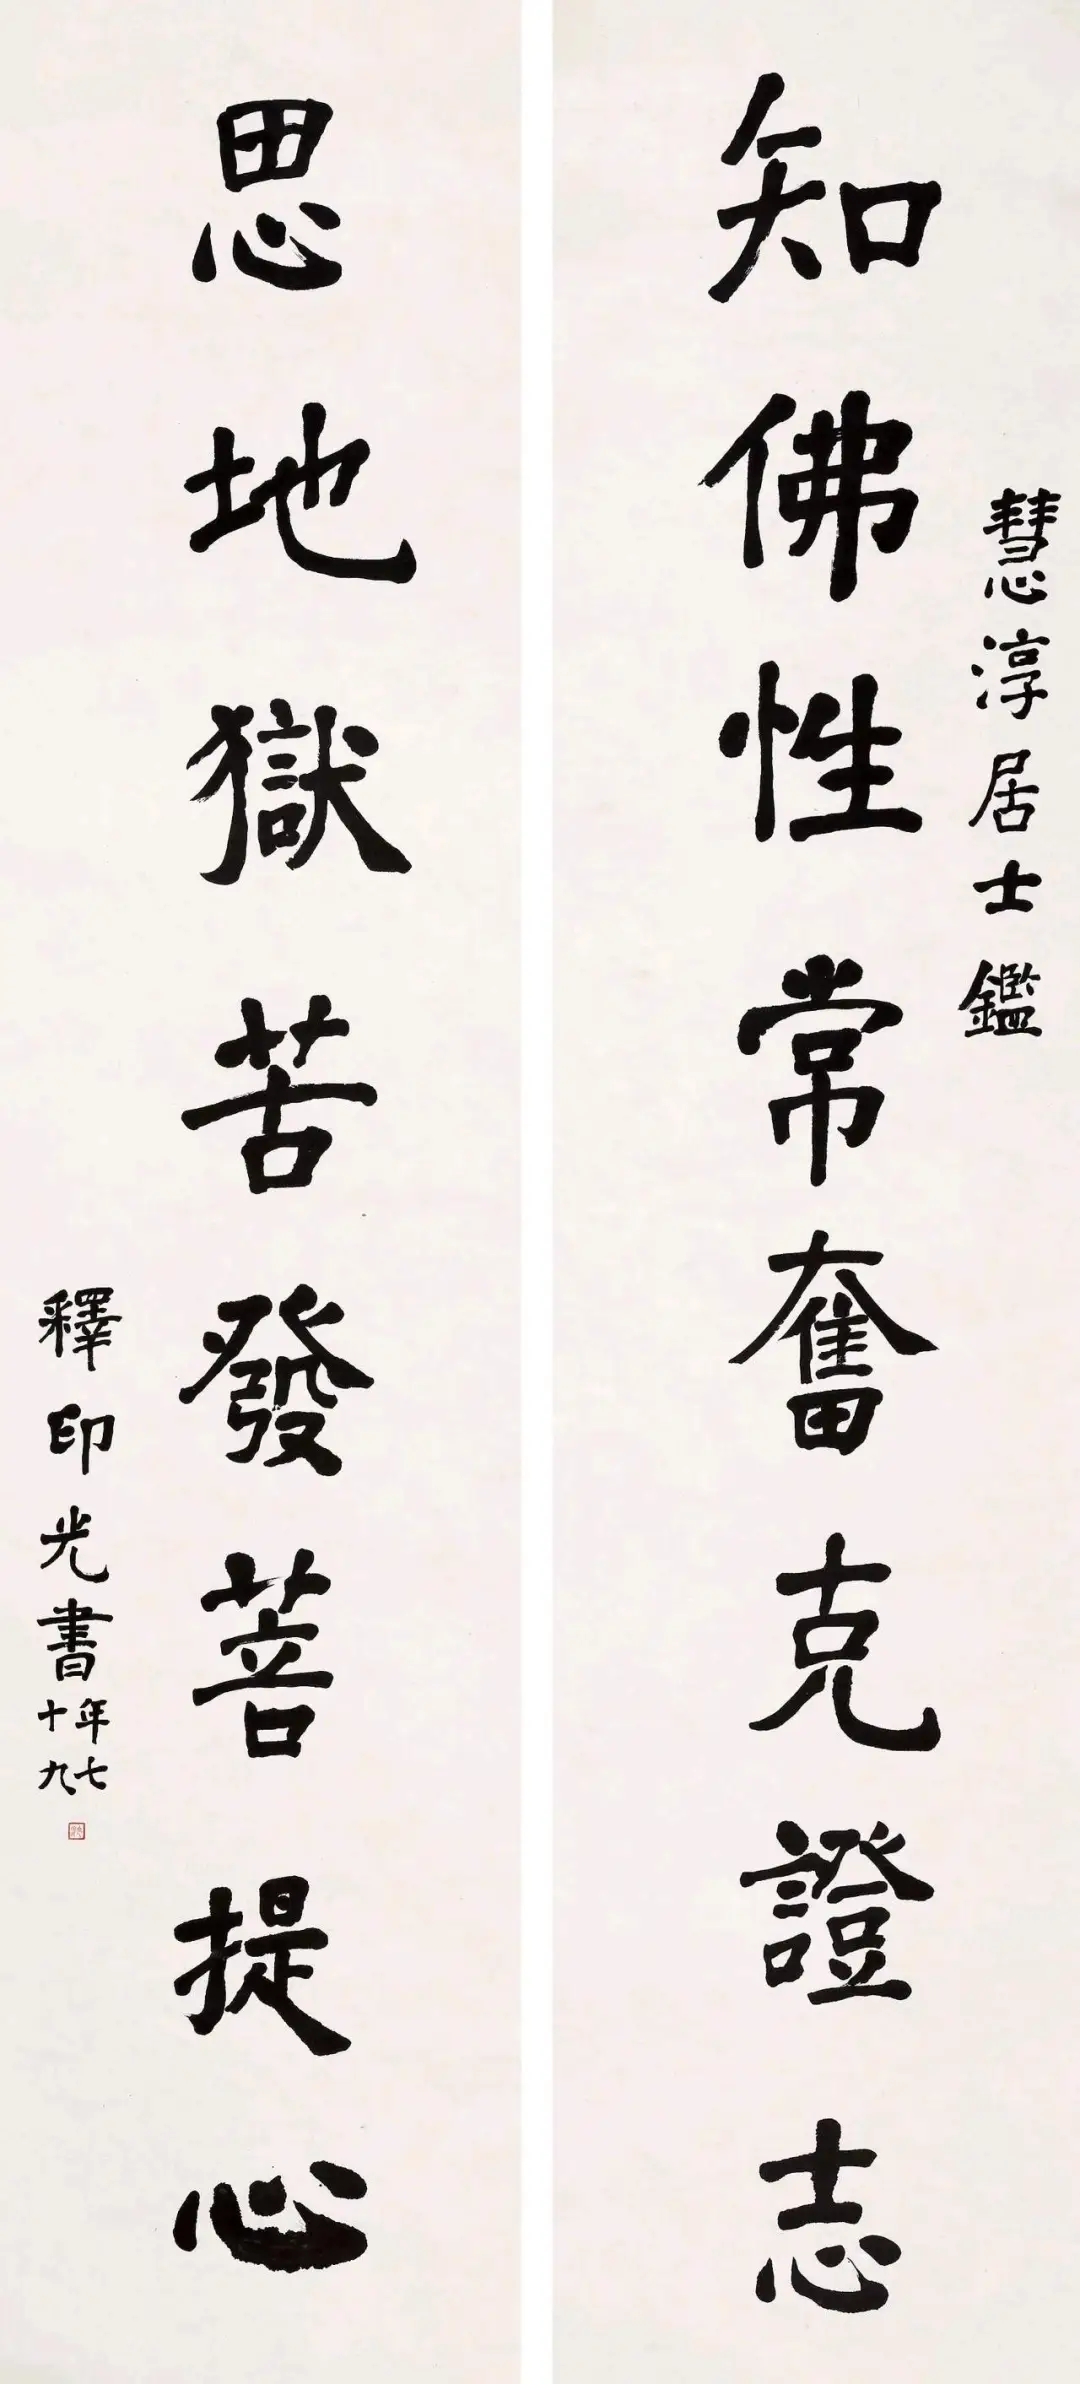 慧淳居士鑑
知佛性常奮克證志
思地獄苦發菩提心
釋印光書
年七
十九